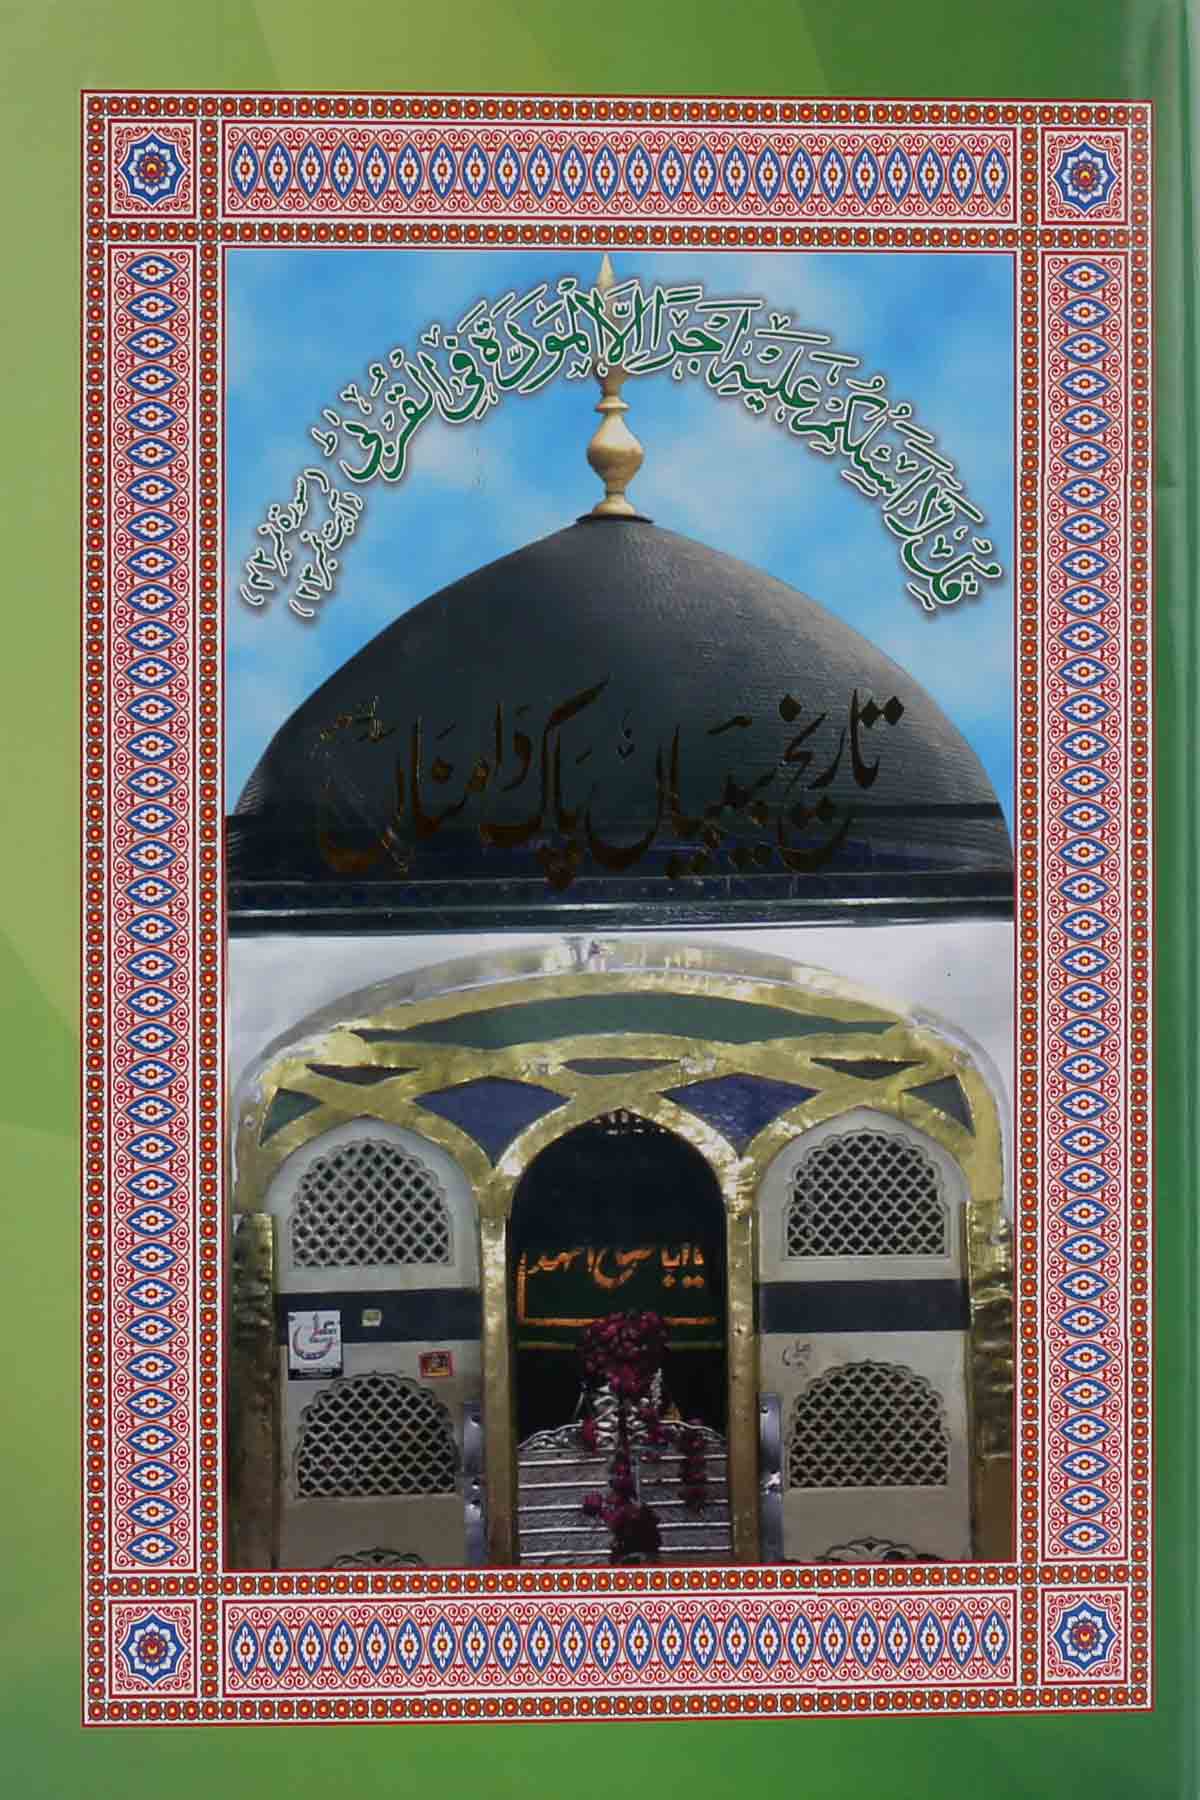 قُلْ لَّا اَسْئَلُكُمْ عَلَيْهِ اَجْرًا اِلَّا الْمَوَدَّةَ فِى الْقُرْبٰى ط
(سورۃ نمبر ۴۲)
(آیت نمبر ۲۳)
تاریخ بیبیاں پاک دامناں